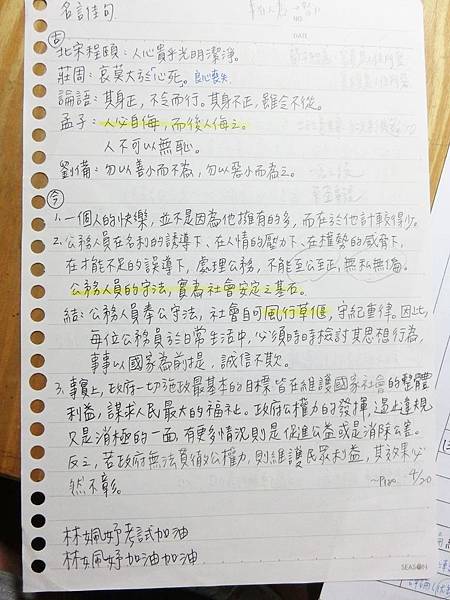 名言佳句
NO
DATE
古
北宋程頤：人心貴乎光明潔淨。
莊周：哀莫大於「心死」。良心喪失
論語：其身正，不令而行。其身不正，雖令不從。
孟子：人必自侮，而後人侮之。
人不可以無恥。
劉備：勿以善小而不為，勿以惡小而為之。
今
1. 一個人的快樂，並不是因為他擁有的多，而在於他計較得少。
2. 公務員在名利的誘導下、在人情的壓力下、在權勢的威脅下，
在才能不足的誤導下，處理公務，不能至公至正，無私無偏。
公務人員的守法，實為社會安定之基石。
結：公務人員奉公守法，社會自可風行草偃，守紀重律。因此，
每位公務員於日常生活中，必須時時檢討其思想行為，
事事以國家為前提，誠信不欺。
3. 事實上，政府一切施政最基本的目標皆在維護國家社會的整體
利益，謀求人民最大的福祉。政府公權力的發揮，遏止違規
只是消極的一面，有更多情況則是促進公益或是消除公害。
反之，若政府無法貫徹公權力，則維護民眾利益，其效果必
然不彰。
~P120. 4/20
林姵妤考試加油
林姵妤加油加油
SEASON